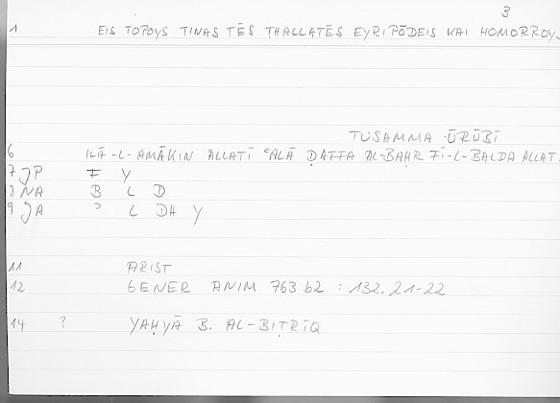 3
1 EIS TOPOYS TINAS TĒS THALLATĒS EYRIPŌDEIS KAI HOMORROY
TUSAMMA ŪRŪBĪ
6 ILĀ-L-AMĀKIN ALLATĪ ʿALĀ ḌAFFA AL-BAḤR FĪ-L-BALDA ALLAT
7 JP F Y
8 NA B L D
9 JA ʾ L DH Y
11 ARIST
12 GENER ANIM 763 b2 : 132.21-22
14 ? YAḤYĀ B. AL-BIṬRĪQ